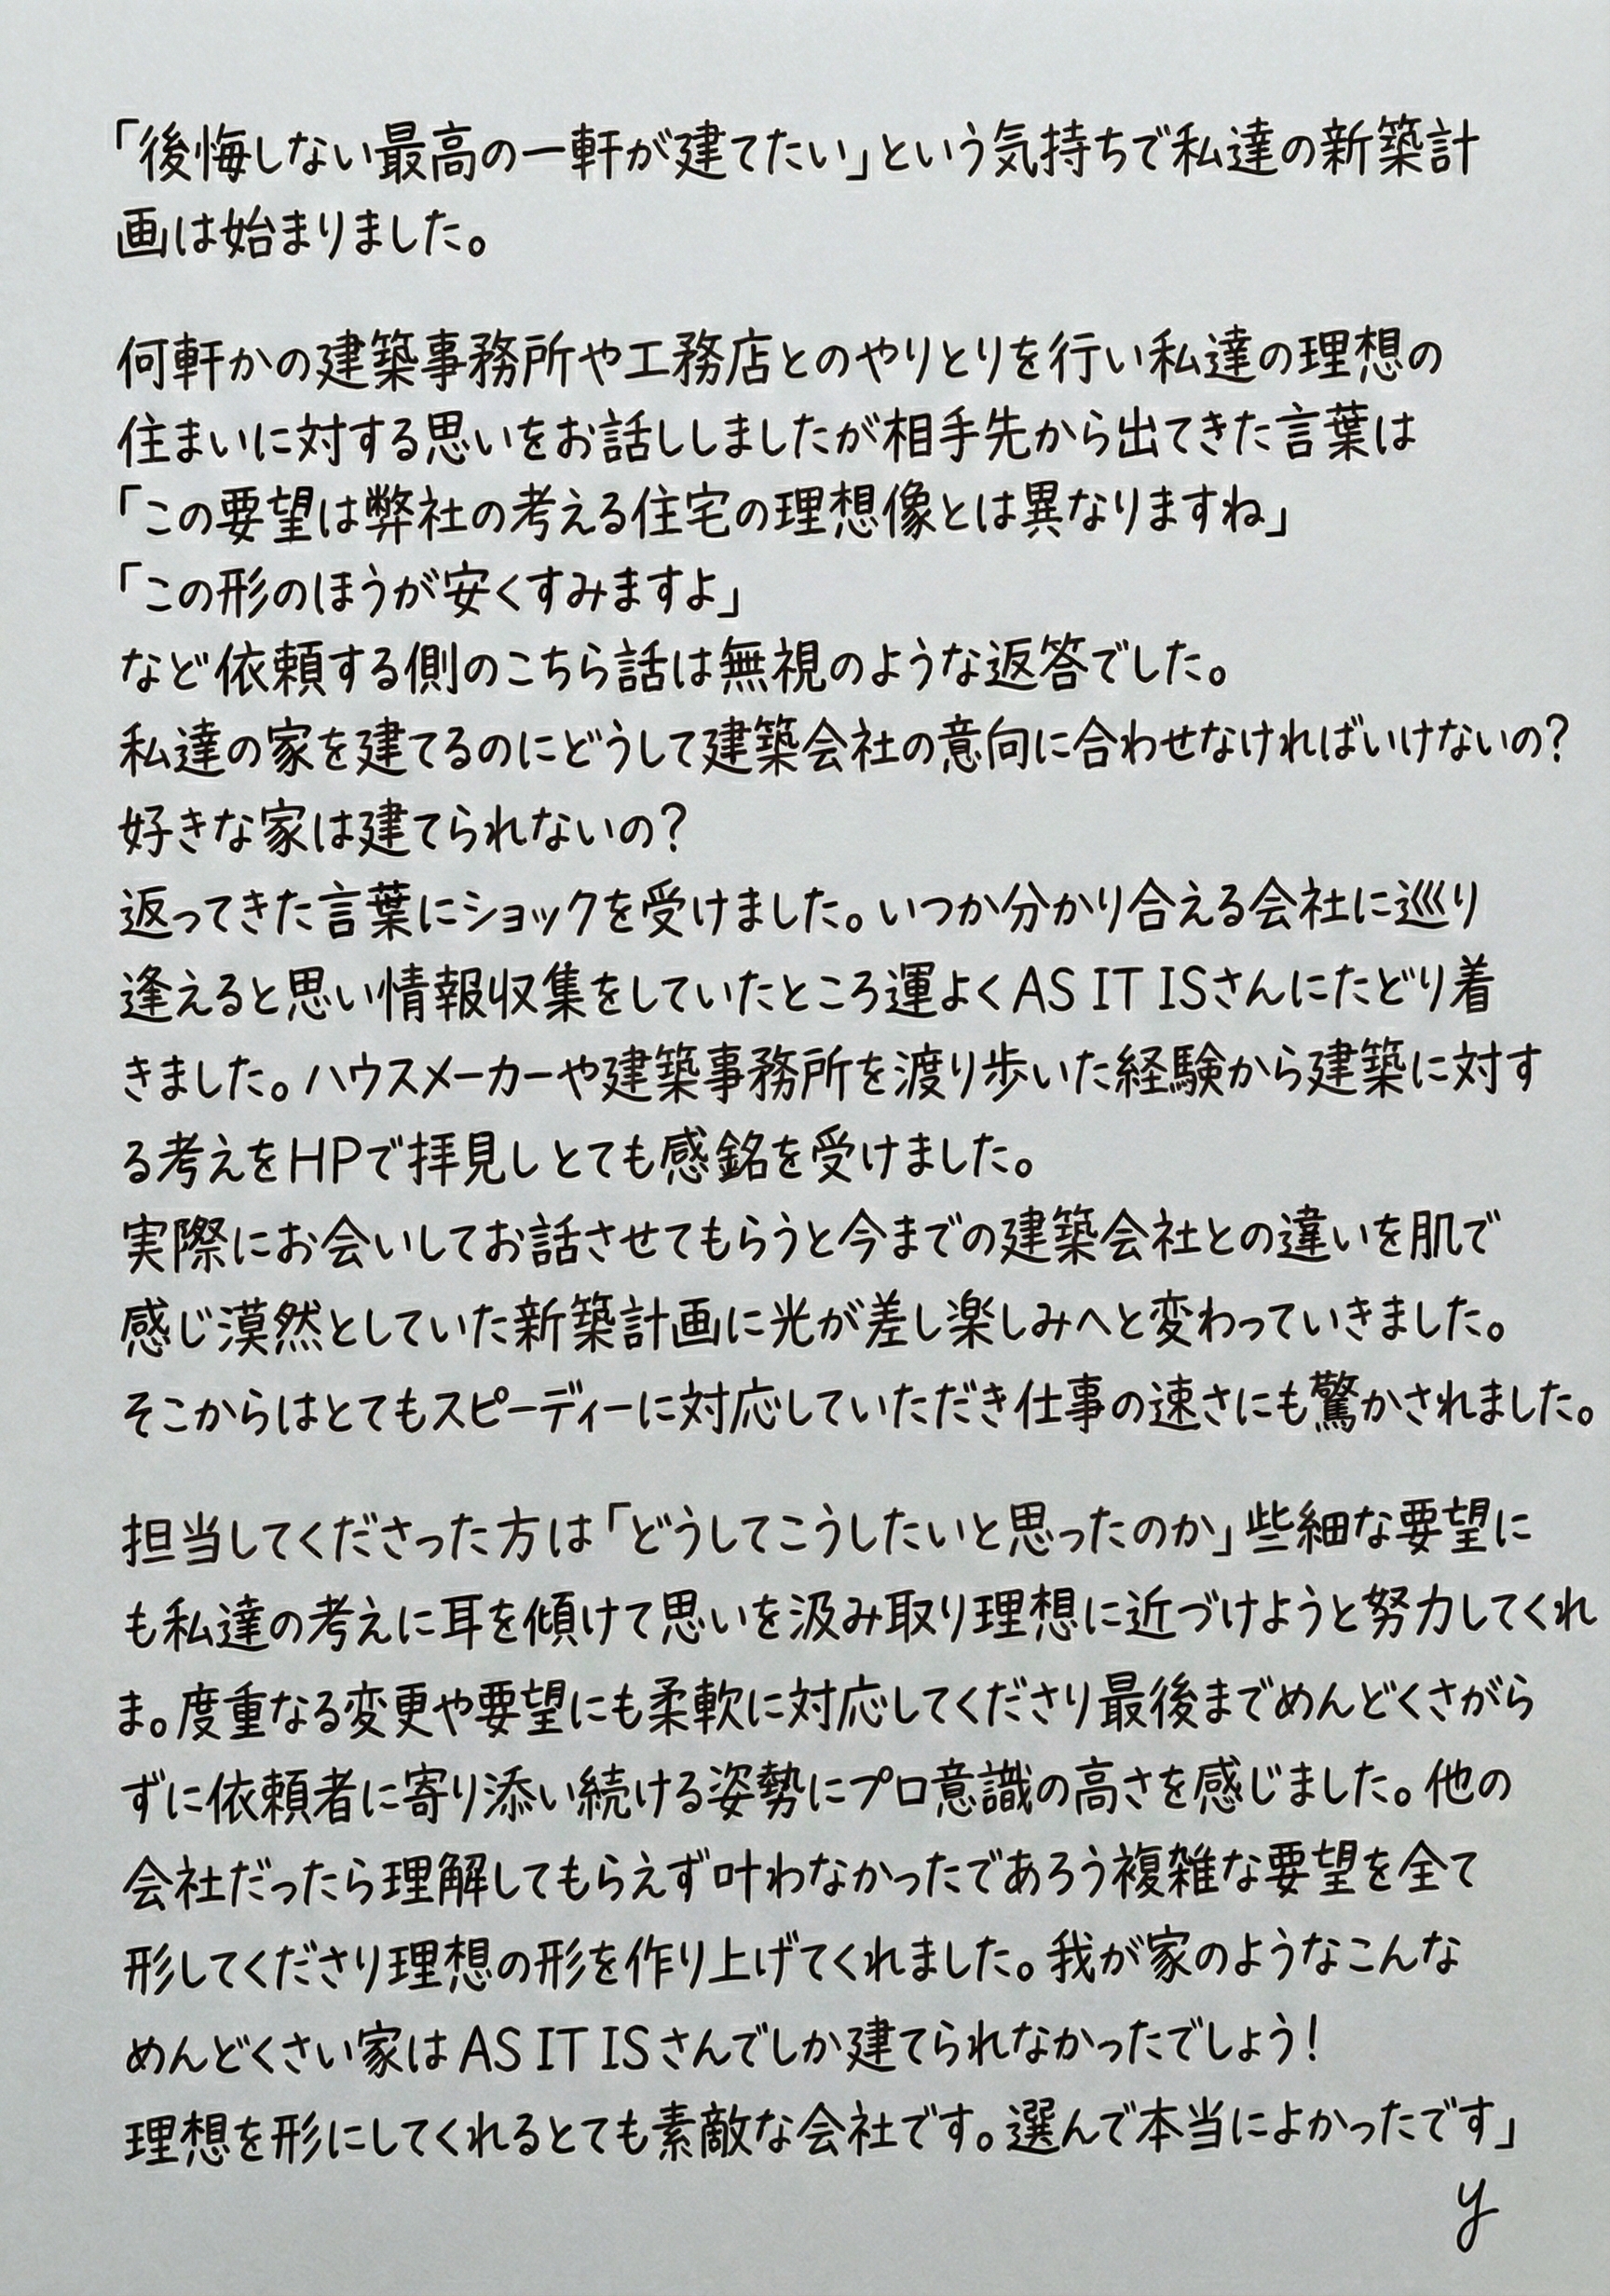 「後悔しない最高の一軒が建てたい」という気持ちで私達の新築計
画は始まりました。
何軒かの建築事務所や工務店とのやりとりを行い私達の理想の
住まいに対する思いをお話ししましたが相手先から出てきた言葉は
「この要望は弊社の考える住宅の理想像とは異なりますね」
「この形のほうが安くすみますよ」
など依頼する側のこちら話は無視のような返答でした。
私達の家を建てるのにどうして建築会社の意向に合わせなければいけないの?
好きな家は建てられないの?
返ってきた言葉にショックを受けました。いつか分かり合える会社に巡り
逢えると思い情報収集をしていたところ運よくAS IT ISさんにたどり着
きました。ハウスメーカーや建築事務所を渡り歩いた経験から建築に対す
る考えをHPで拝見しとても感銘を受けました。
実際にお会いしてお話させてもらうと今までの建築会社との違いを肌で
感じ漠然としていた新築計画に光が差し楽しみへと変わっていきました。
そこからはとてもスピーディーに対応していただき仕事の速さにも驚かされました。
担当してくださった方は「どうしてこうしたいと思ったのか」些細な要望に
も私達の考えに耳を傾けて思いを汲み取り理想に近づけようと努力してくれ
ま。度重なる変更や要望にも柔軟に対応してくださり最後までめんどくさがら
ずに依頼者に寄り添い続ける姿勢にプロ意識の高さを感じました。他の
会社だったら理解してもらえず叶わなかったであろう複雑な要望を全て
形してくださり理想の形を作り上げてくれました。我が家のようなこんな
めんどくさい家はAS IT ISさんでしか建てられなかったでしょう!
理想を形にしてくれるとても素敵な会社です。選んで本当によかったです」
y